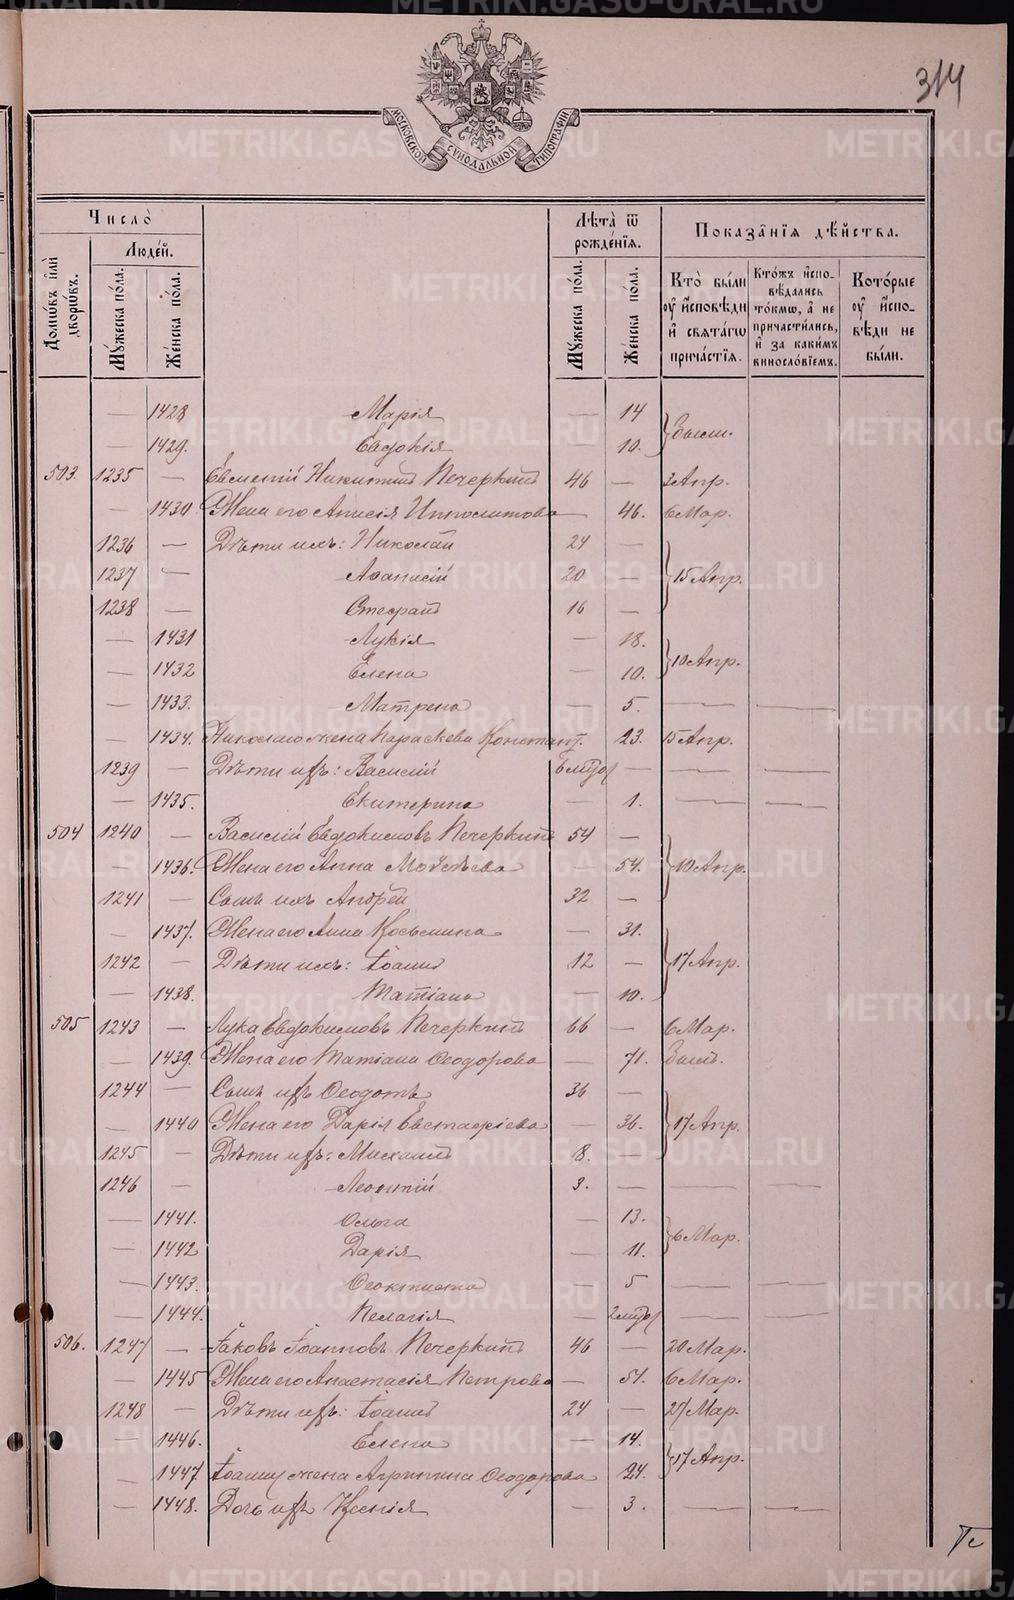 314
МОСКОВСКОЙ СѴНОДАЛЬНОЙ ТИПОГРАФІИ
Число̀
Домѡ́въ и҆лѝ дворѡ́въ.
Люде́й.
Мꙋ́жеска по́ла.
Же́нска по́ла.
Лѣ̑та ѿ рожде́нїѧ.
Мꙋ́жеска по́ла.
Же́нска по́ла.
Показа̑нїѧ дѣ́йства.
Кто̀ бы́ли оу҆ и҆сповѣ́ди и҆ свѧта́гѡ прича́стїѧ.
Кто́жъ и҆спо-вѣ́дались то́кмѡ, а҆ не причасти́лись, и҆ за каки́мъ винослові́емъ.
Кото́рые оу҆ и҆спо-вѣ́ди не бы́ли.
— 1428 Марія — 14
— 1429. Евдокія — 10. } были.
503. 1235 — Евментій Никитинъ Печеркинъ 46 — 2 Апр.
— 1430 Жена его Анисія Ипполитова — 46. 6 Мар.
1236 — Дѣти ихъ: Николай 24 —
1237 — Аѳанасій 20 — } 15 Апр.
1238 — Стефанъ 16 —
— 1431 Лукія — 18.
— 1432 Елена — 10. } 10 Апр.
— 1433. Матрена — 5. — —
— 1434. Николаю жена Параскева Констант. — 23. 15 Апр.
1239 — Дѣти ихъ: Василій 6 мцоҮ — — —
— 1435. Екатерина — 1. — —
504 1240 — Василій Евдокимовъ Печеркинъ 54 —
— 1436. Жена его Анна Моѵсѣева — 54. } 10 Апр.
1241 — Сынъ ихъ Андрей 32 —
— 1437. Жена его Анна Косьмина — 31.
1242 — Дѣти ихъ: Іоаннъ 12 — } 17 Апр.
— 1438. Татіана — 10.
505 1243 — Лука Евдокимовъ Печеркинъ 66 — 6 Мар.
— 1439. Жена его Татіана Ѳеодорова — 71. былъ.
1244 — Сынъ ихъ Ѳеодотъ 36 —
— 1440 Жена его Дарія Евстафіева — 36. } 17 Апр.
1245 — Дѣти ихъ: Михаилъ 8. —
1246 — Леонтій 3. — — —
— 1441. Ольга — 13.
— 1442 Дарія — 11. } 6 Мар.
— 1443. Ѳеоктиста — 5 — —
— 1444. Пелагія — — —
506. 1247 — Іаковъ Іоанновъ Печеркинъ 46 — 20 Мар.
— 1445 Жена его Анастасія Петрова — 51. 6 Мар.
1248 — Дѣти ихъ: Іоаннъ 24 — 27 Мар.
— 1446. Елена — 14.
— 1447 Іоанну жена Агрипина Ѳеодорова 24. } 17 Апр.
— 1448. Дочь ихъ Ксенія — 3. — —
METRIKI.GASO-URAL.RU